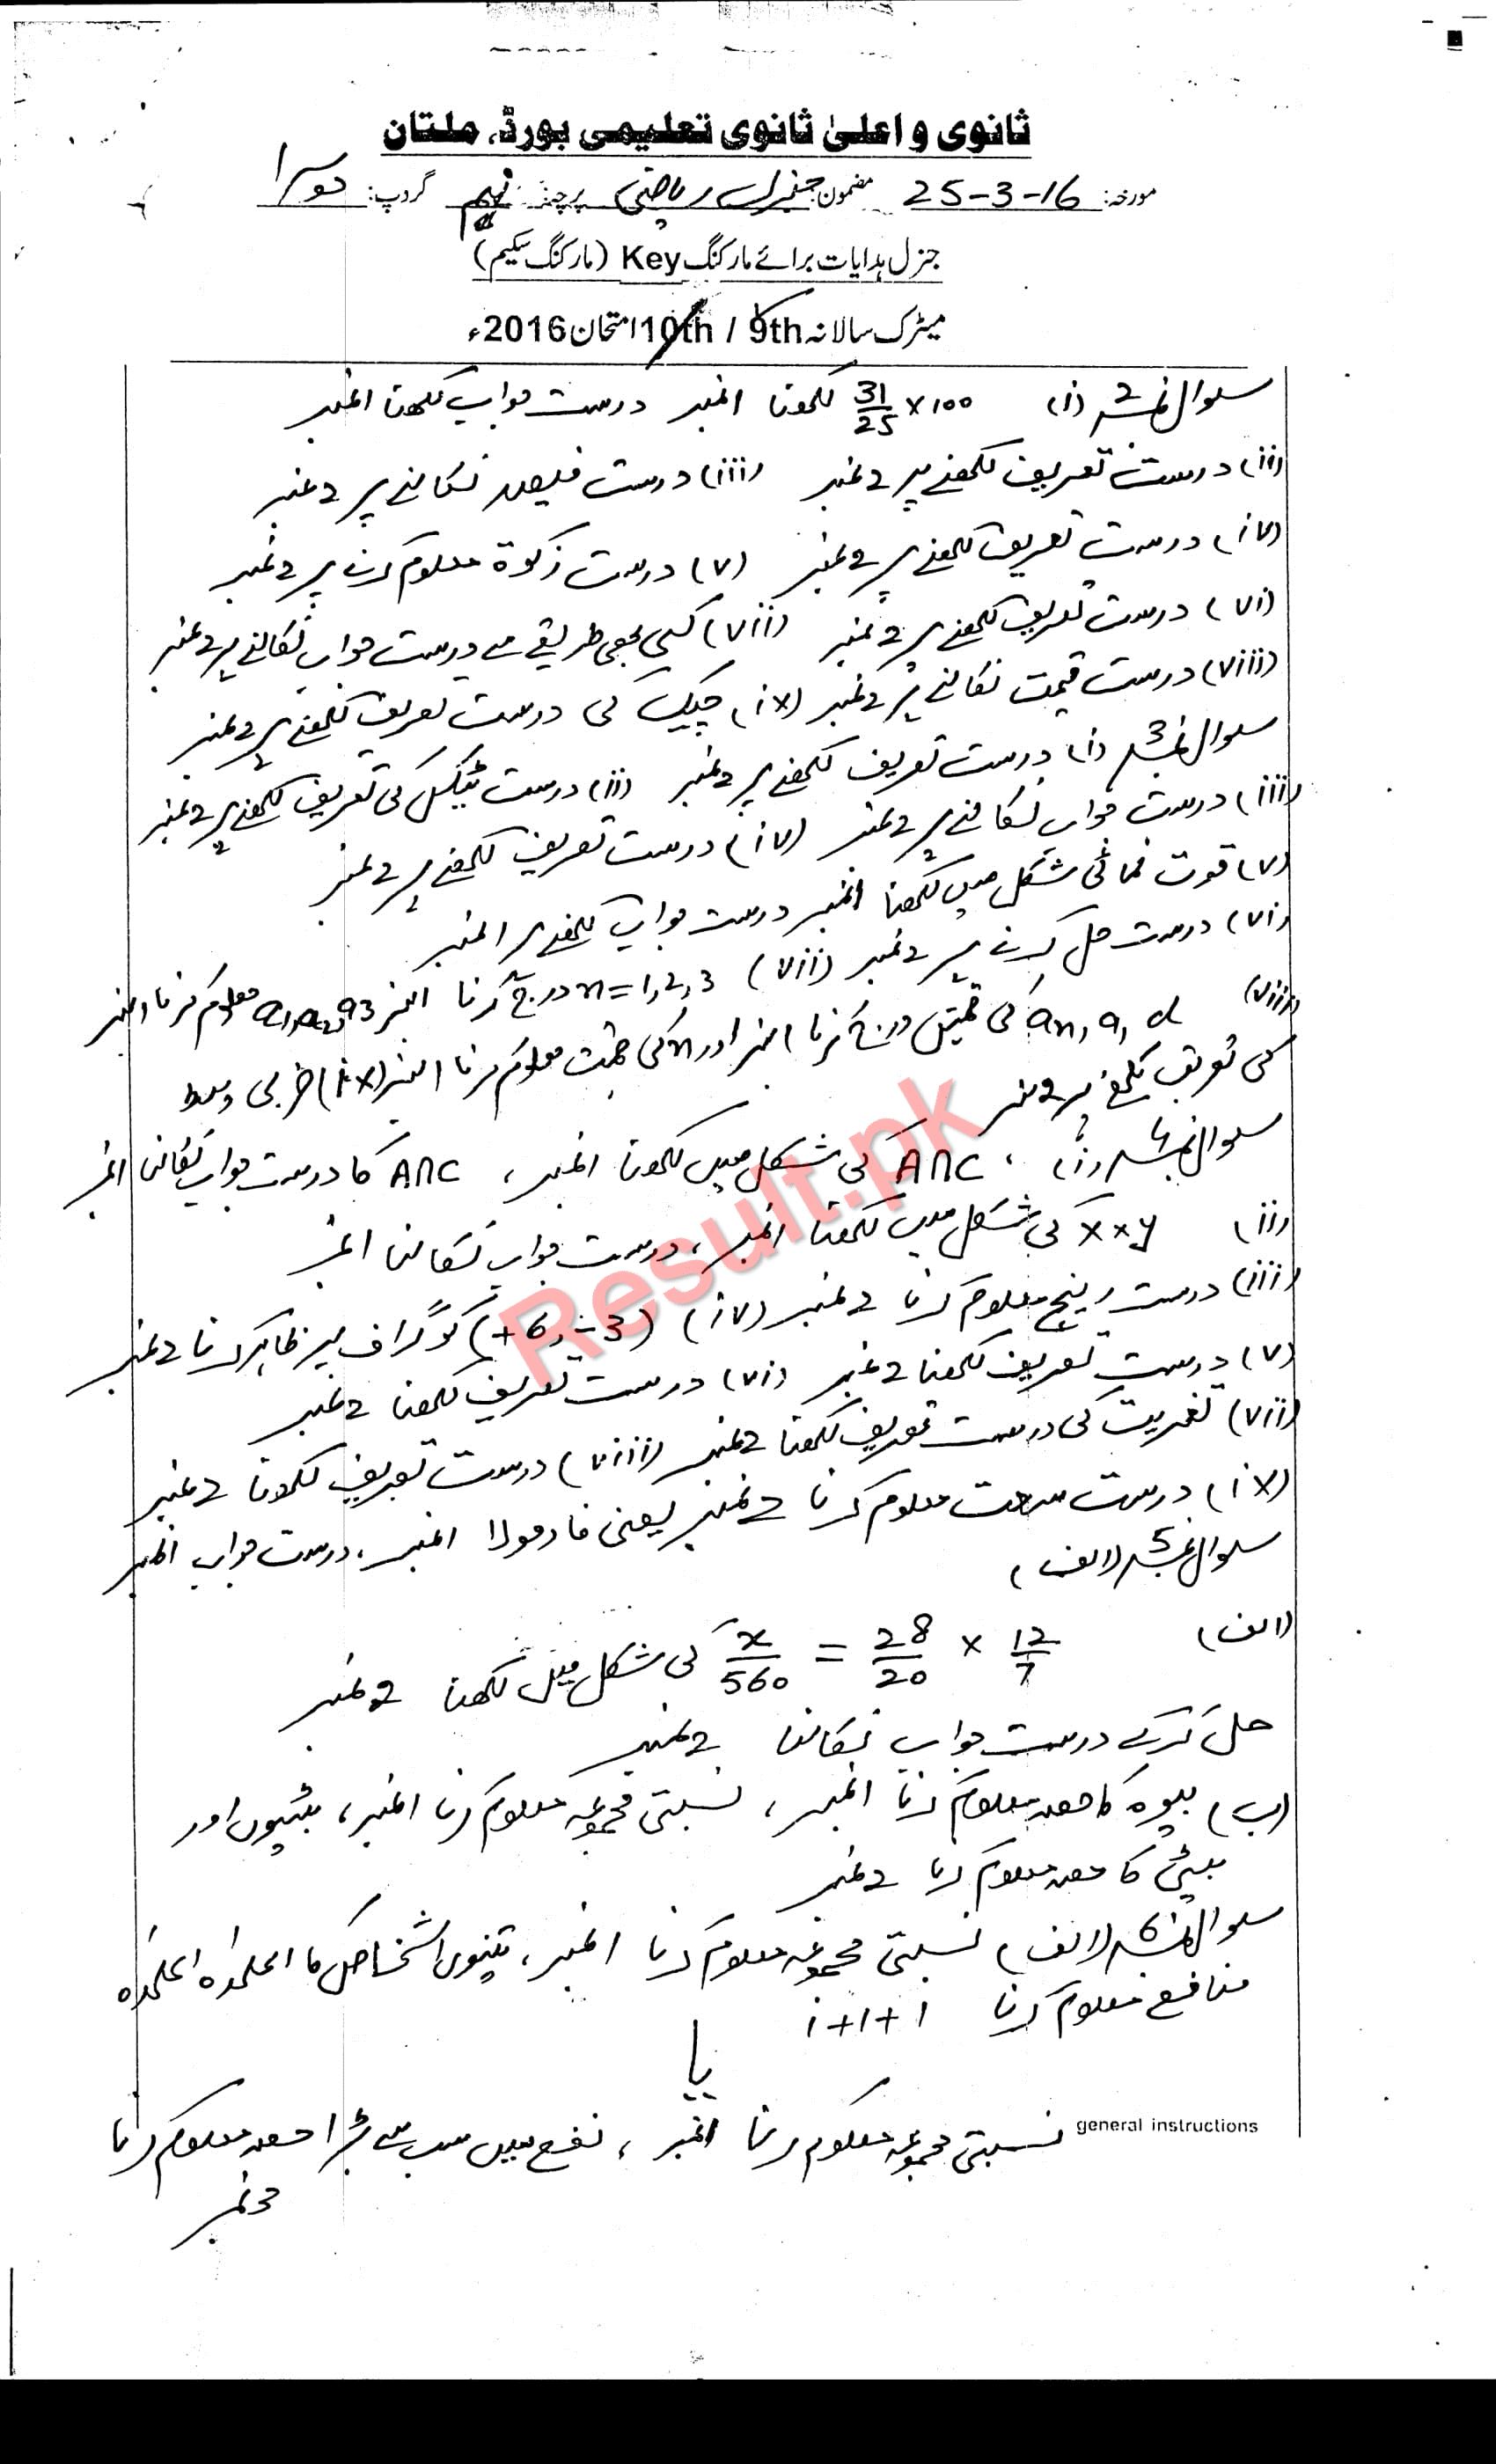 ثانوی و اعلیٰ ثانوی تعلیمی بورڈ، ملتان
مورخہ: 25-3-16 مضمون: جنرل ریاضی پرچہ: نہم گروپ: دوسرا
جنرل ہدایات برائے مارکنگ Key (مارکنگ سکیم)
میٹرک سالانہ 9th / 10th امتحان 2016ء
سوال نمبر 2 (i) 31/25 × 100 لکھنا 1نمبر درست جواب لکھنا 1نمبر
(ii) درست تعریف لکھنے پر 2 نمبر (iii) درست فیصد نکالنے پر 2 نمبر
(iv) درست تعریف لکھنے پر 2 نمبر (v) درست زکوٰۃ معلوم کرنے پر 2 نمبر
(vi) درست تعریف لکھنے پر 2 نمبر (vii) کسی بھی طریقے سے درست جواب نکالنے پر 2 نمبر
(viii) درست قیمت نکالنے پر 2 نمبر (ix) چیک کی درست تعریف لکھنے پر 2 نمبر
سوال نمبر 3 (i) درست تعریف لکھنے پر 2 نمبر (ii) درست ٹیکس کی تعریف لکھنے پر 2 نمبر
(iii) درست جواب نکالنے پر 2 نمبر (iv) درست تعریف لکھنے پر 2 نمبر
(v) قوت نمائی شکل میں لکھنا 1نمبر درست جواب لکھنے پر 1نمبر
(vi) درست حل کرنے پر 2 نمبر (vii) n = 1, 2, 3 درج کرنا 1نمبر a1, a2, a3 معلوم کرنا 1نمبر
(viii) an, a1, d کی قیمتیں درج کرنا 1نمبر اور n کی قیمت معلوم کرنا 1نمبر (ix) ضربی وسط
کی تعریف لکھنے پر 2 نمبر
سوال نمبر 4 (i) A∩C کی شکل میں لکھنا 1نمبر، A∩C کا درست جواب نکالنا 1نمبر
(ii) x × y کی شکل میں لکھنا 1نمبر، درست جواب نکالنا 1نمبر
(iii) درست رینج معلوم کرنا 2 نمبر (iv) کو گراف پر ظاہر کرنا 2 نمبر
(v) درست تعریف لکھنا 2 نمبر (vi) درست تعریف لکھنا 2 نمبر
(vii) کی درست تعریف لکھنا 2 نمبر (viii) درست تعریف لکھنا 2 نمبر
(ix) درست معلوم کرنا 2 نمبر یعنی فارمولا 1نمبر، درست جواب 1نمبر
سوال نمبر 5 (الف)
(الف) 12/7 × 28/20 = x/560 کی شکل میں لکھنا 2 نمبر
حل کرکے درست جواب نکالنا 2 نمبر
(ب) بیوہ کا حصہ معلوم کرنا 1نمبر، نسبتی مجموعہ معلوم کرنا 1نمبر، بیٹیوں اور
بیٹے کا حصہ معلوم کرنا 2 نمبر
سوال نمبر 6 (الف) نسبتی مجموعہ معلوم کرنا 1نمبر، تینوں اشخاص کا علیحدہ علیحدہ
منافع معلوم کرنا 1+1+1
یا
general instructions
نسبتی مجموعہ معلوم کرنا 1نمبر، نفع میں سب سے بڑا حصہ معلوم کرنا
3 نمبر
Result.pk